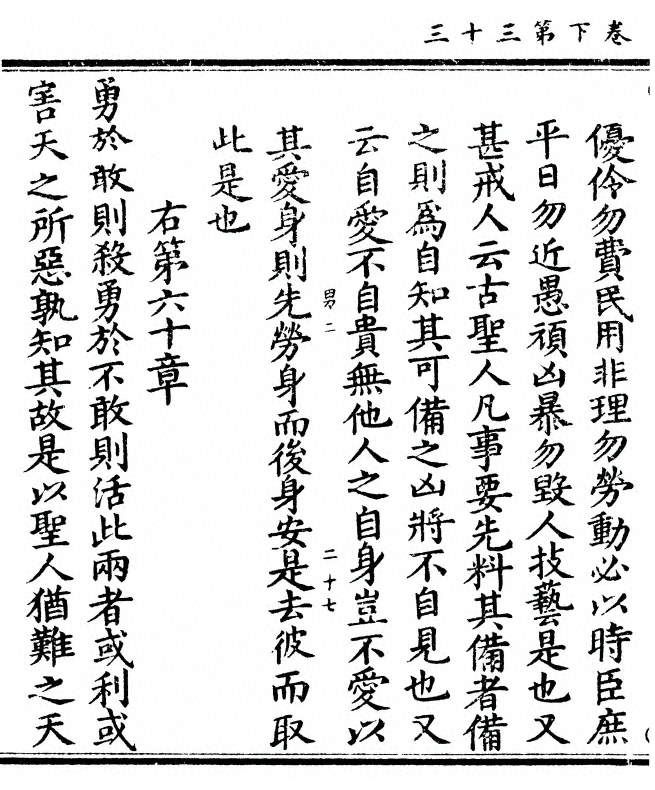 卷下第三十三
優伶勿費民用非理勿勞動必以時臣庶
平日勿近愚頑凶暴勿毀人技藝是也又
甚戒人云古聖人凡事要先料其備者備
之則爲自知其可備之凶將不自見也又
云自愛不自貴無他人之自身豈不愛以
男二
二十七
其愛身則先勞身而後身安是去彼而取
此是也
右第六十章
勇於敢則殺勇於不敢則活此兩者或利或
害天之所惡孰知其故是以聖人猶難之天